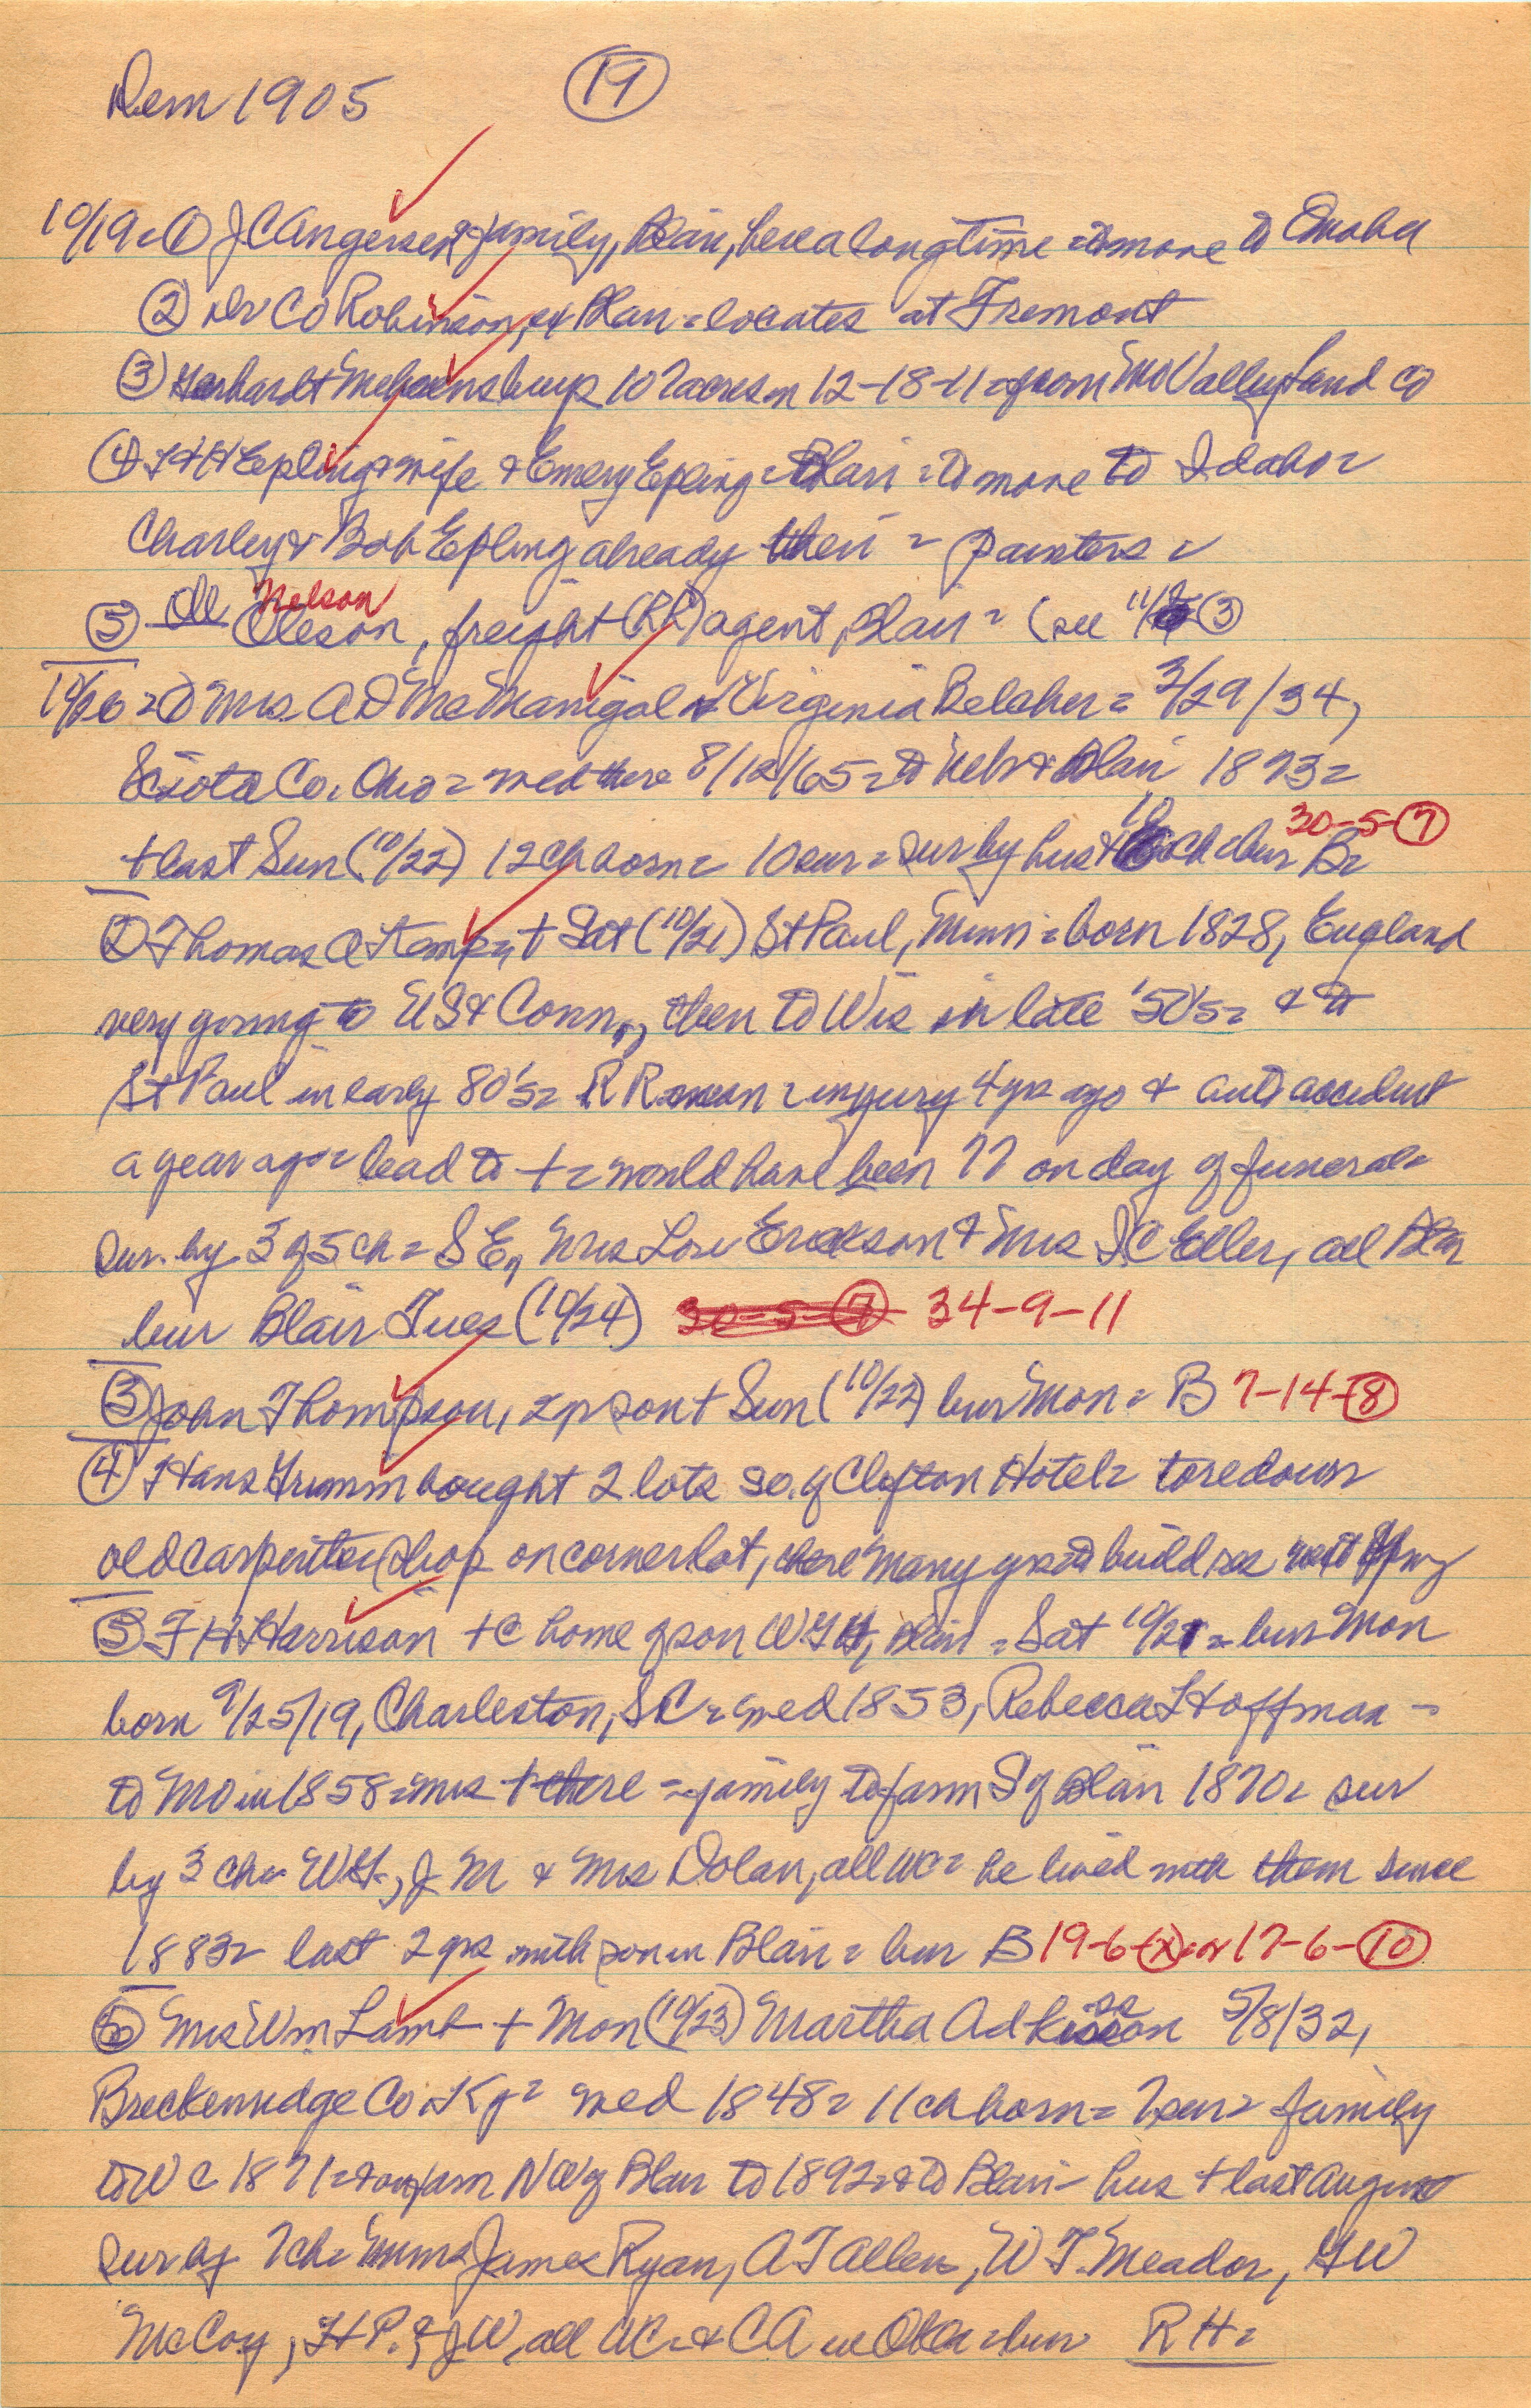 Dem 1905 (19)
10/19 = (1) J C Angersen & family, Blair, here a long time = to move to Omaha
(2) Dr C O Robinson, ex Blair = locates at Fremont
(3) Gerhardt buys 107 acres in 12-18-11 = from Mo Valley Land Co
(4) H H Epling & wife & Emery Epling = Blair = to move to Idaho =
Charley & Bob Epling already there = painters =
(5) Ole Nelson
Oleson, freight (RR) agent, Blair = (see 11/ (3)
10/26 = (1) Mrs A D McManigal = Virginia Belcher = 3/29/34,
Sciota Co. Ohio = med there 8/12/65 = to Nebr & Blair 1873 =
+ last Sun (10/22) 12 ch born = 10 sur = sur by hus & 10 ch = bur B = 30-5-(7)
(2) Thomas A Kemp = + Sat (10/21) St Paul, Minn = born 1828, England
very young to US & Conn, then to Wis in late '50's = & to
St Paul in early 80's = RR man = injury 4 yrs ago & auto accident
a year ago = lead to + = would have been 77 on day of funeral =
sur. by 3 of 5 ch = S E, Mrs Lou Erickson & Mrs I C Eller, all Blair
bur Blair Tues (10/24) 30-5-(7) 34-9-11
(3) John Thompson, 2 p son + Sun (10/22) bur Mon = B 7-14-(8)
(4) Hans Grimm bought 2 lots so. of Clifton Hotel = tore down
old carpenter shop on corner lot, there many yrs = to build res
(5) F H Harrison + @ home of son W.H, Blair = Sat 10/21 = bur Mon
born 9/25/19, Charleston, S C = med 1853, Rebecca Hoffman =
to Mo in 1858 = Mrs + there = family to farm S of Blair 1870 = sur
by 3 ch = W H, J M & Mrs Dolan, all WC = he lived with them since
1883 = last 2 yrs with son in Blair = bur B 19-6-(x) or 17-6-(10)
(6) Mrs Wm Lamb + Mon (10/23) Martha Adkisson 5/8/32,
Breckenridge Co. Ky = med 1848 = 11 ch born = 7 sur = family
to W C 1871 = & on farm NW of Blair to 1892 = & to Blair = hus + last August
sur by 7 ch = Mmes James Ryan, A T Allen, W T. Meador, G W
McCoy, H P. & J W, all WC = & C A in Okla = bur R H =